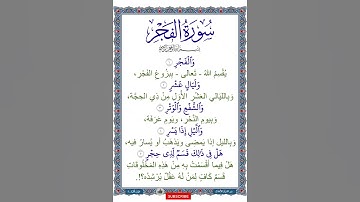 سُورَةُ الفَجْرِ
وَٱلْفَجْرِ ١
يُقْسِمُ اللهُ - تَعَالَى - بِبُزُوغِ الفَجْرِ،
وَلَيَالٍ عَشْرٍ ٢
وَبِاللَّيَالِي العَشْرِ الأُوَلِ مِنْ ذِي الحِجَّةِ،
وَٱلشَّفْعِ وَٱلْوَتْرِ ٣
وَبِيَومِ النَّحْرِ، وَيَومِ عَرَفَةَ،
وَٱلَّيْلِ إِذَا يَسْرِ ٤
وَبِاللَّيلِ إِذَا يَمضِي وَيَذْهَبُ أَو يُسَارُ فِيهِ،
هَلْ فِي ذَٰلِكَ قَسَمٌ لِّذِي حِجْرٍ ٥
هَلْ فِيمَا أَقْسَمْتُ بِهِ مِنْ هَذِهِ المَخْلُوقَاتِ
قَسَمٌ كَافٍ لِمَنْ لَهُ عَقْلٌ يُرْشِدُهُ؟!.
SUBSCRIBE